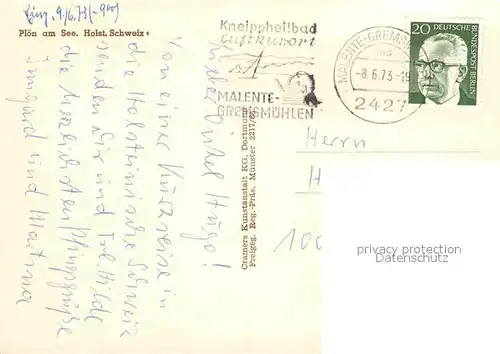 Eing. 9./6.73 (-900)
Plön am See. Holst. Schweiz
Kneippheilbad
Luftkurort
MALENTE-
GREMSMÜHLEN
MALENTE-GREMSMÜHLEN
-8.6.73-19
2427
20 DEUTSCHE
BUNDESPOST BERLIN
Lieber Onkel Hugo!
Von einer Kurzreise in
die Holsteinische Schweiz
senden wir und Tante Hilde
die herzlichsten Pfingstgrüße
Irmgard und Martina
Cramers Kunstanstalt KG. Dortmund
Freigeg. Reg.-Präs. Münster 2217/65
Herrn
H
100
privacy protection
Datenschutz